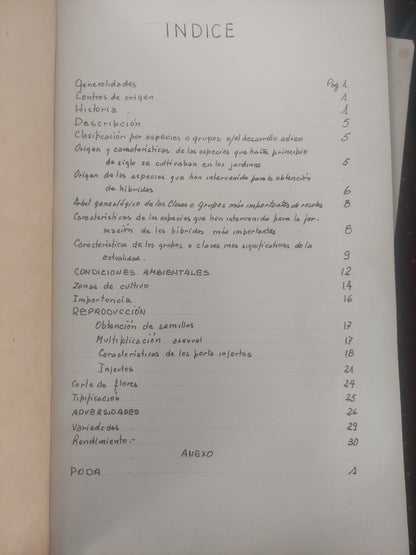 INDICE
Generalidades Pag 1
Centros de origen 1
Historia 1
Descripción 5
Clasificación por especies o grupos s/el desarrollo aéreo 5
Origen y características de las especies que hasta principio
de siglo se cultivaban en los jardines 5
Origen de las especies que han intervenido para la obtención
de híbridos 6
Arbol genealógico de las Clases o Grupos más importantes de rosales 8
Características de las especies que han intervenido para la for-
mación de los híbridos más importantes 8
Características de los grupos o clases más significativas de la
actualidad. 9
CONDICIONES AMBIENTALES 12
Zonas de cultivo 14
Importancia 16
REPRODUCCIÓN
Obtención de semillas 17
Multiplicación asexual 17
Características de los porta injertos 18
Injertos 21
Corte de flores 24
Tipificación 25
ADVERSIDADES 26
Variedades 29
Rendimiento.- 30
ANEXO
PODA 1